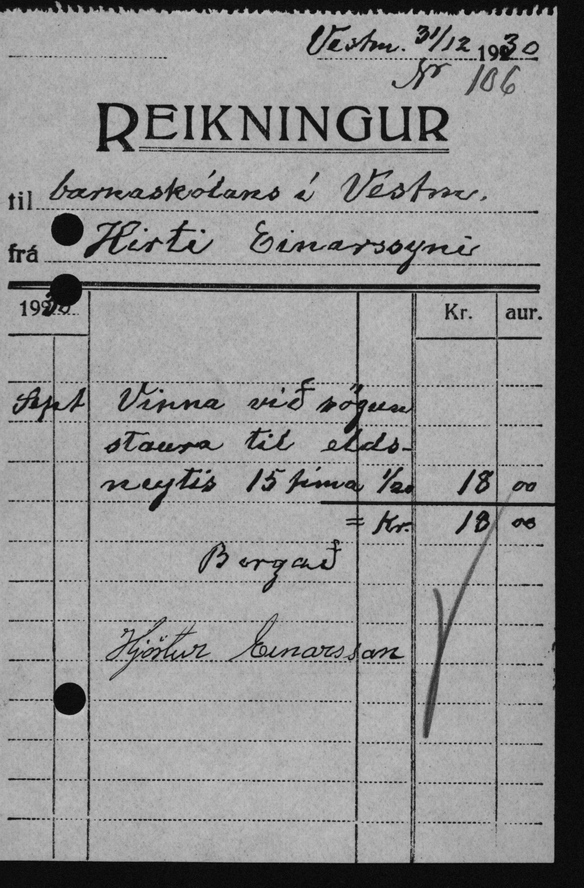 Vestm. 31/12 1930
Nr 106
REIKNINGUR
til barnaskólans í Vestm.
frá Hirti Einarssyni
1930 Kr. aur.
Sept Vinna við sögun
staura til elds-
neytis 15 tíma 1/20 18 00
= Kr. 18 00
Borgað
Hjörtur Einarsson